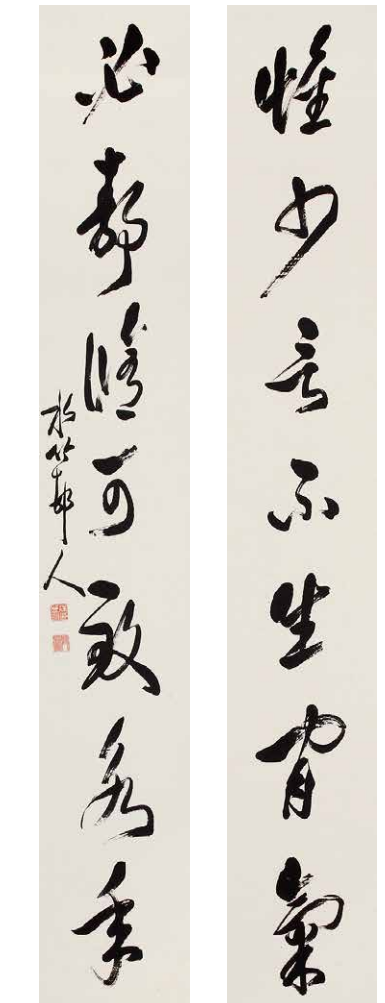 惟少言不生閒氣
必靜脩可致永年
水竹邨人